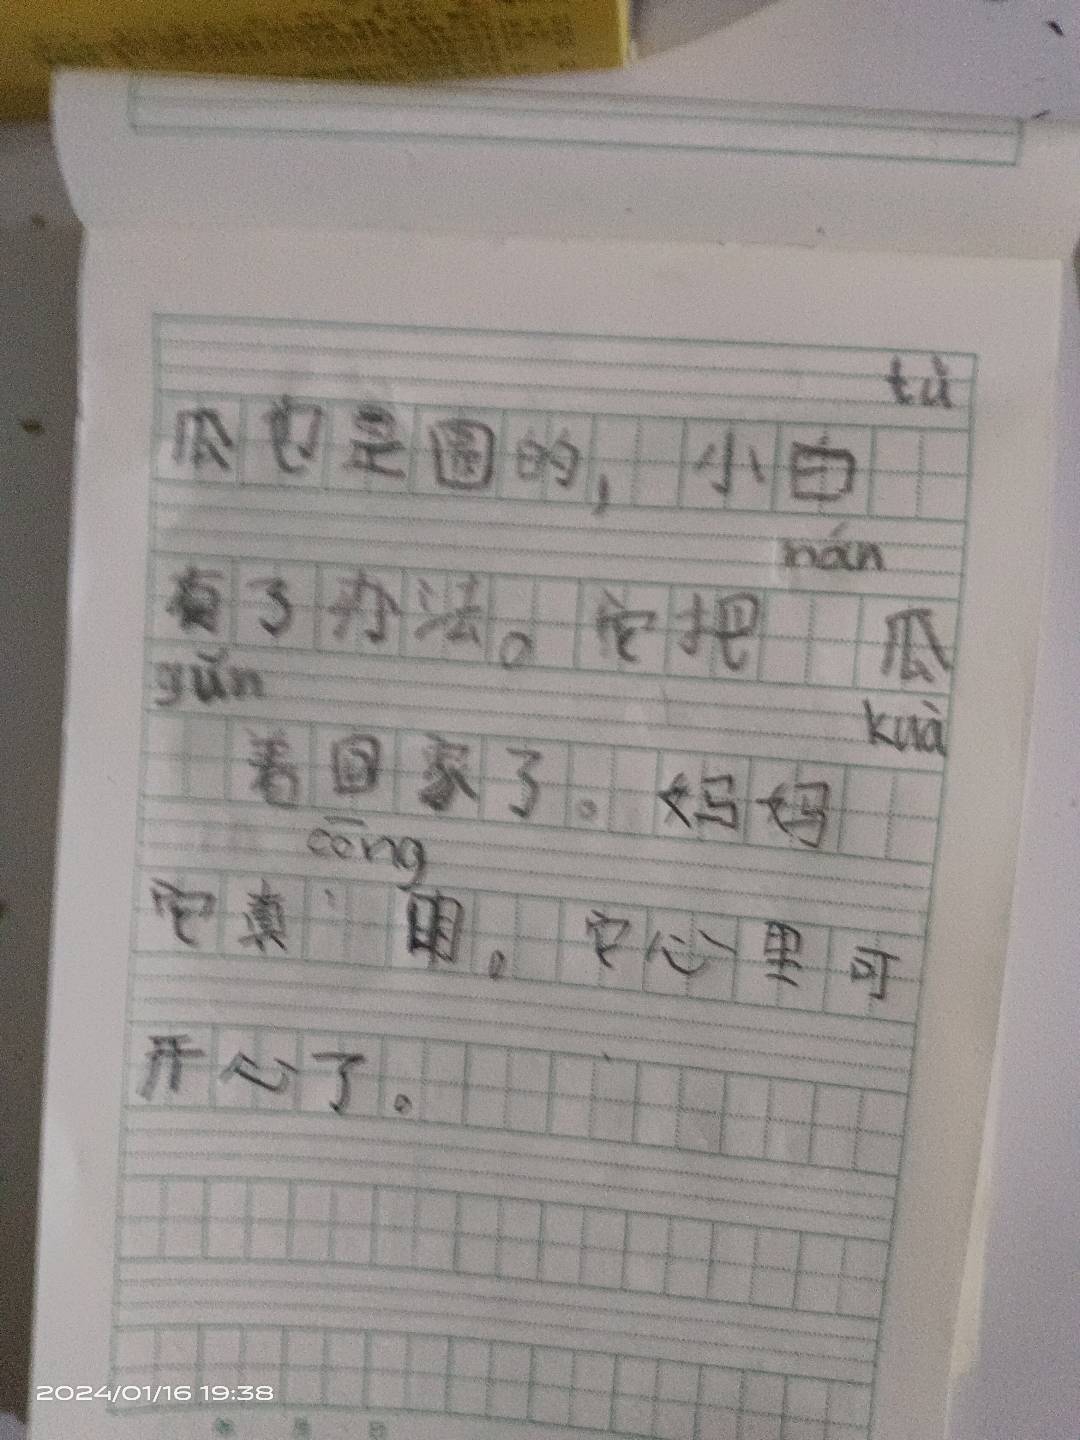 tù
瓜也是圆的，小白
nán
有了办法。它把 瓜
gǔn kuà
着回家了。妈妈
cōng
它真 明。它心里可
开心了。
2024/01/16 19:38